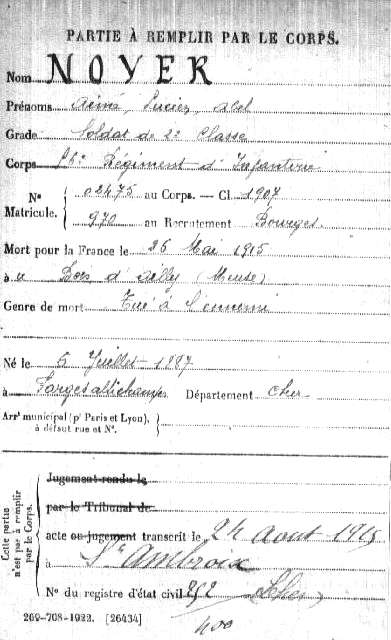 PARTIE À REMPLIR PAR LE CORPS.
Nom NOYER
Prénoms Aimé, Lucien, Abel
Grade Soldat de 2e Classe
Corps Régiment d'Infanterie
No 02475 au Corps. — Cl. 1907
Matricule. 970 au Recrutement Bourges.
Mort pour la France le 26 Mai 1915
à u Bois d'Ailly (Meuse)
Genre de mort Tué à l'ennemi
Né le 5 Juillet 1887
à Farges allichamps Département Cher
Arrt municipal (pr Paris et Lyon),
à défaut rue et No.
Cette partie n'est pas à remplir par le Corps.
Jugement rendu le
par le Tribunal de
acte ou jugement transcrit le 24 Aout 1915
à St Ambroix
No du registre d'état civil 252 (Cher)
269-708-1922. [26434]